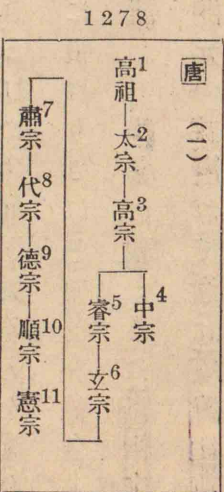 1278
唐
（一）
高祖1
太宗2
高宗3
中宗4
睿宗5
玄宗6
肅宗7
代宗8
德宗9
順宗10
憲宗11